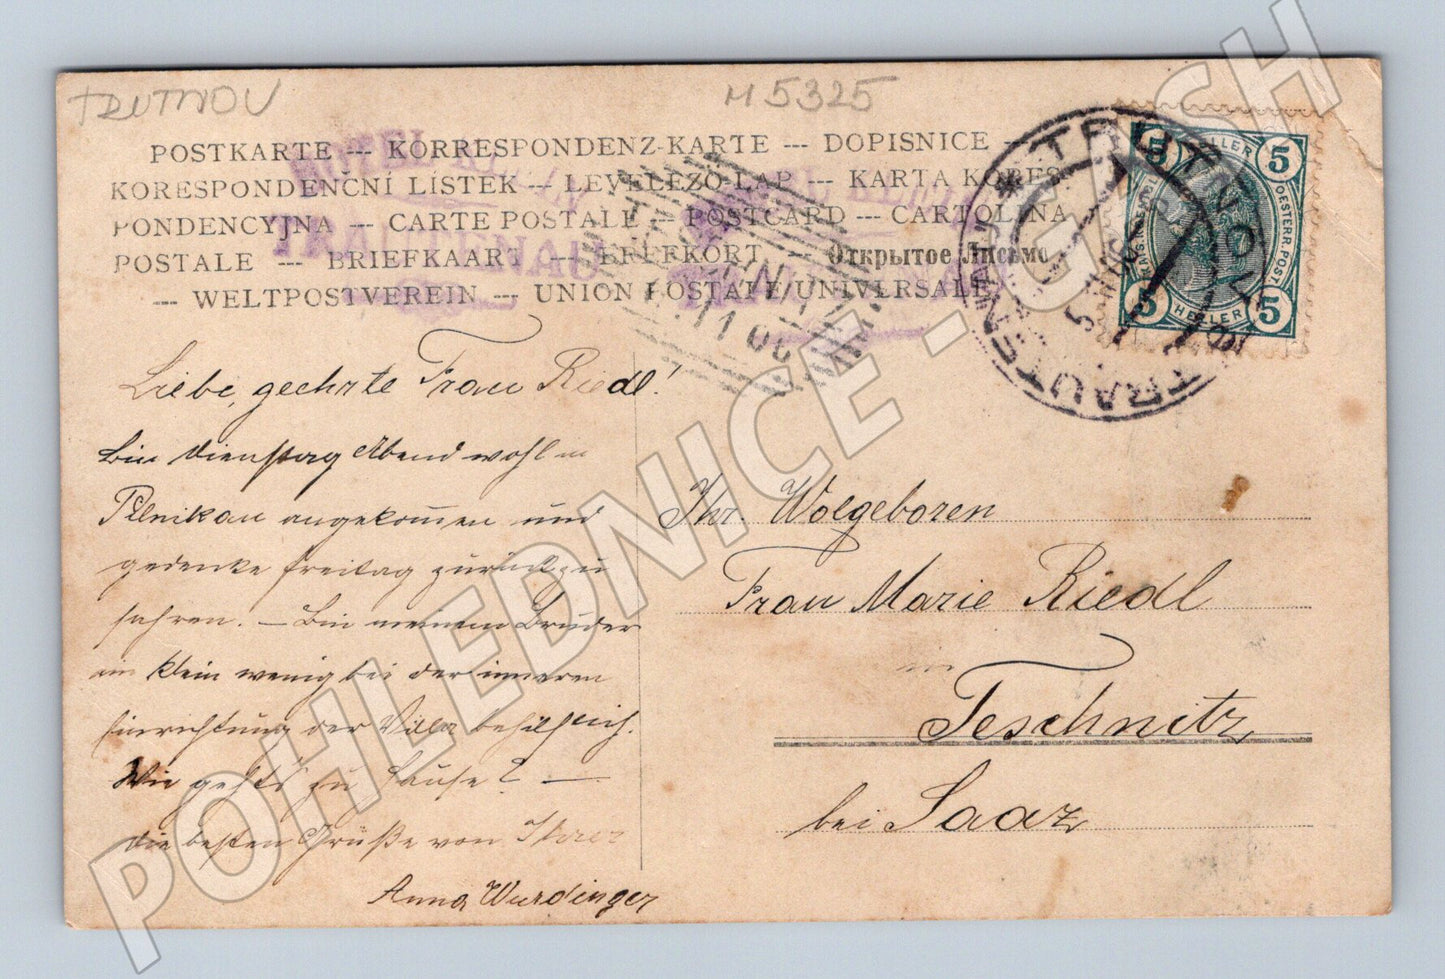 TRUTNOV
M 5325
POSTKARTE --- KORRESPONDENZ-KARTE --- DOPISNICE ---
KORESPONDENČNÍ LÍSTEK --- LEVELEZŐ-LAP --- KARTA KORES-
PONDENCYJNA --- CARTE POSTALE --- POSTCARD --- CARTOLINA
POSTALE --- BRIEFKAART --- BREFKORT --- Открытое Письмо
--- WELTPOSTVEREIN --- UNION POSTALE UNIVERSALE
TRAUTENAU
TRAUTENAU
11 06
* TRUTNOV 1 *
TRAUTENAU
5 HELLER 5
OESTERR. POST
5 HELLER 5
Liebe, geehrte Frau Riedl!
Bin Dienstag Abend wohl in
Pilnikau angekommen und
gedenke Freitag zurück zu
fahren. — Bin meinem Bruder
ein klein wenig bei der inneren
Einrichtung der Villa behilflich.
Wie geht's zu Hause? —
Die besten Grüße von Ihrer
Anna Wurdinger
Ihr. Wolgeboren
Frau Marie Riedl
in
Teschnitz
bei Saaz
POHLEDNICE - GASH